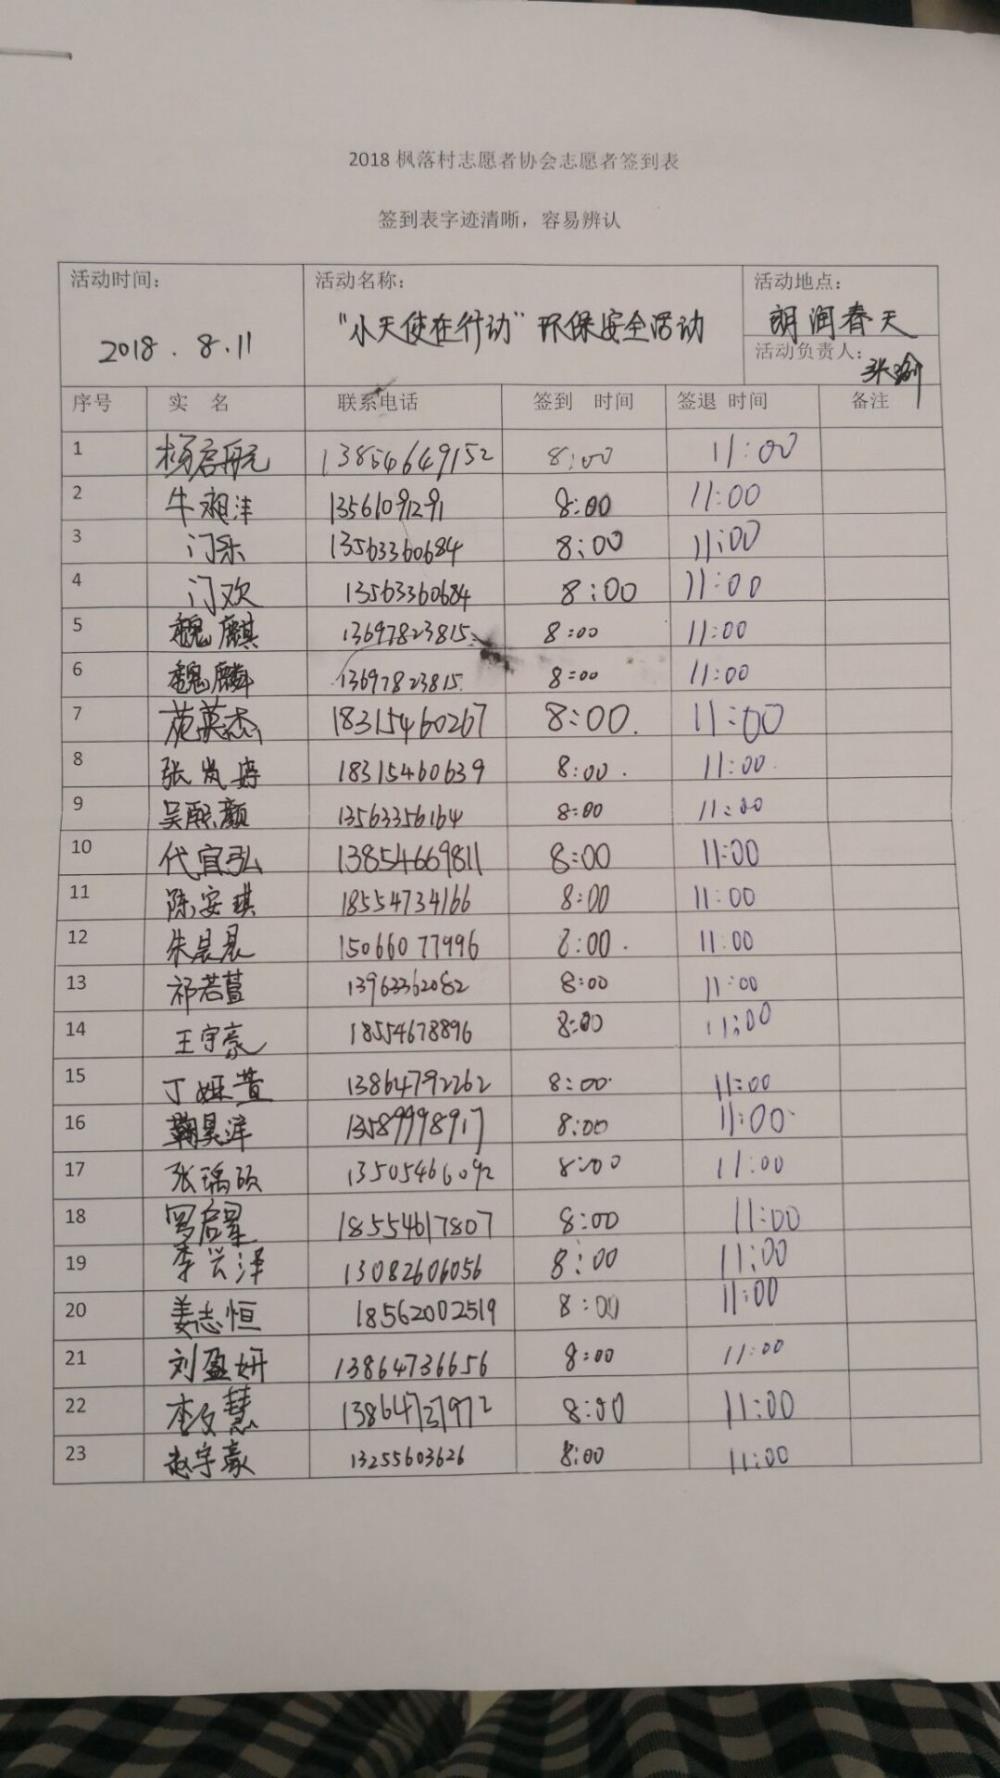 2018 枫落村志愿者协会志愿者签到表
签到表字迹清晰，容易辨认
活动时间： 活动名称： 活动地点：
2018．8．11 “小天使在行动”环保安全活动 朗润春天
活动负责人：张瑜
序号 实 名 联系电话 签到 时间 签退 时间 备注
1 杨启航 13854649152 8:00 11:00
2 牛湘沣 13561091291 8:00 11:00
3 门乐 13563360684 8:00 11:00
4 门欢 13563360684 8:00 11:00
5 魏麒 13697823815 8:00 11:00
6 魏麟 13697823815 8:00 11:00
7 范英杰 18315460267 8:00 11:00
8 张岚婷 18315460639 8:00 11:00
9 吴熙颜 13563356164 8:00 11:00
10 代宜弘 13854669811 8:00 11:00
11 陈安琪 18554734166 8:00 11:00
12 朱晨晨 15066077996 8:00 11:00
13 祁若萱 13963362082 8:00 11:00
14 王宇豪 18554678896 8:00 11:00
15 丁娅萱 13864792262 8:00 11:00
16 鞠昊洋 13589998917 8:00 11:00
17 张瑀硕 13505466092 8:00 11:00
18 罗启星 18554617807 8:00 11:00
19 李兴泽 13082606056 8:00 11:00
20 姜志恒 18562002519 8:00 11:00
21 刘盈妍 13864736656 8:00 11:00
22 李文慧 8:00 11:00
23 赵宇豪 13255603626 8:00 11:00